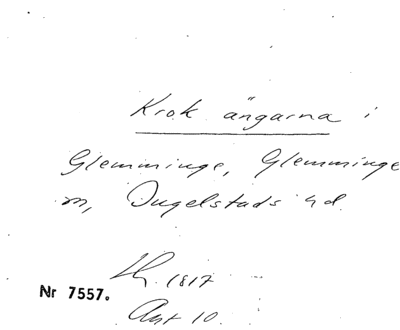 Krok ängarna i
Glemminge, Glemminge
sn, Ingelstads hd.
1817
Nr 7557.
Avst 10.